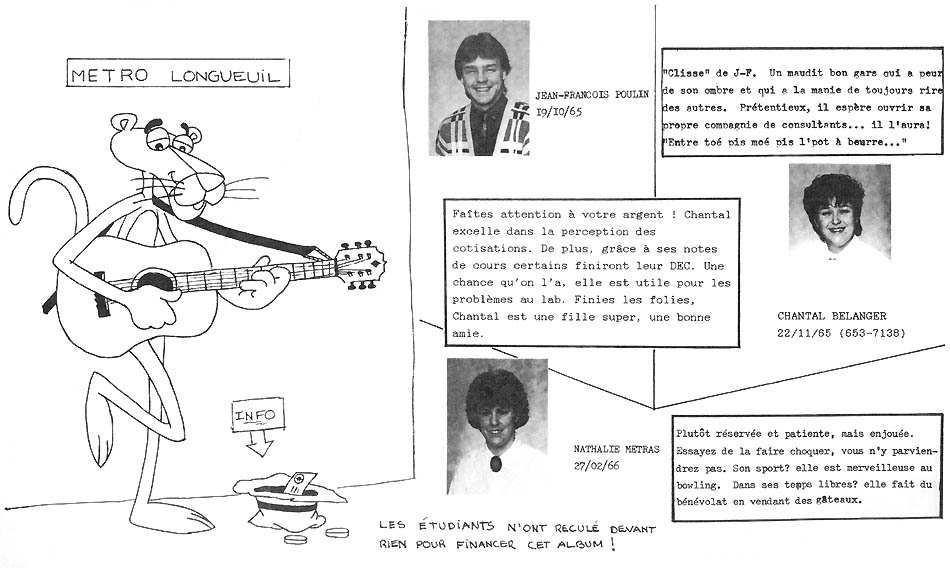 METRO LONGUEUIL
JEAN-FRANCOIS POULIN
19/10/65
"Clisse" de J-F. Un maudit bon gars qui a peur
de son ombre et qui a la manie de toujours rire
des autres. Prétentieux, il espère ouvrir sa
propre compagnie de consultants... il l'aura!
"Entre toé pis moé pis l'pot à beurre..."
Faîtes attention à votre argent ! Chantal
excelle dans la perception des
cotisations. De plus, grâce à ses notes
de cours certains finiront leur DEC. Une
chance qu'on l'a, elle est utile pour les
problèmes au lab. Finies les folies,
Chantal est une fille super, une bonne
amie.
CHANTAL BELANGER
22/11/65 (653-7138)
NATHALIE METRAS
27/02/66
Plutôt réservée et patiente, mais enjouée.
Essayez de la faire choquer, vous n'y parvien-
drez pas. Son sport? elle est merveilleuse au
bowling. Dans ses temps libres? elle fait du
bénévolat en vendant des gâteaux.
INFO
LES ÉTUDIANTS N'ONT RECULÉ DEVANT
RIEN POUR FINANCER CET ALBUM !